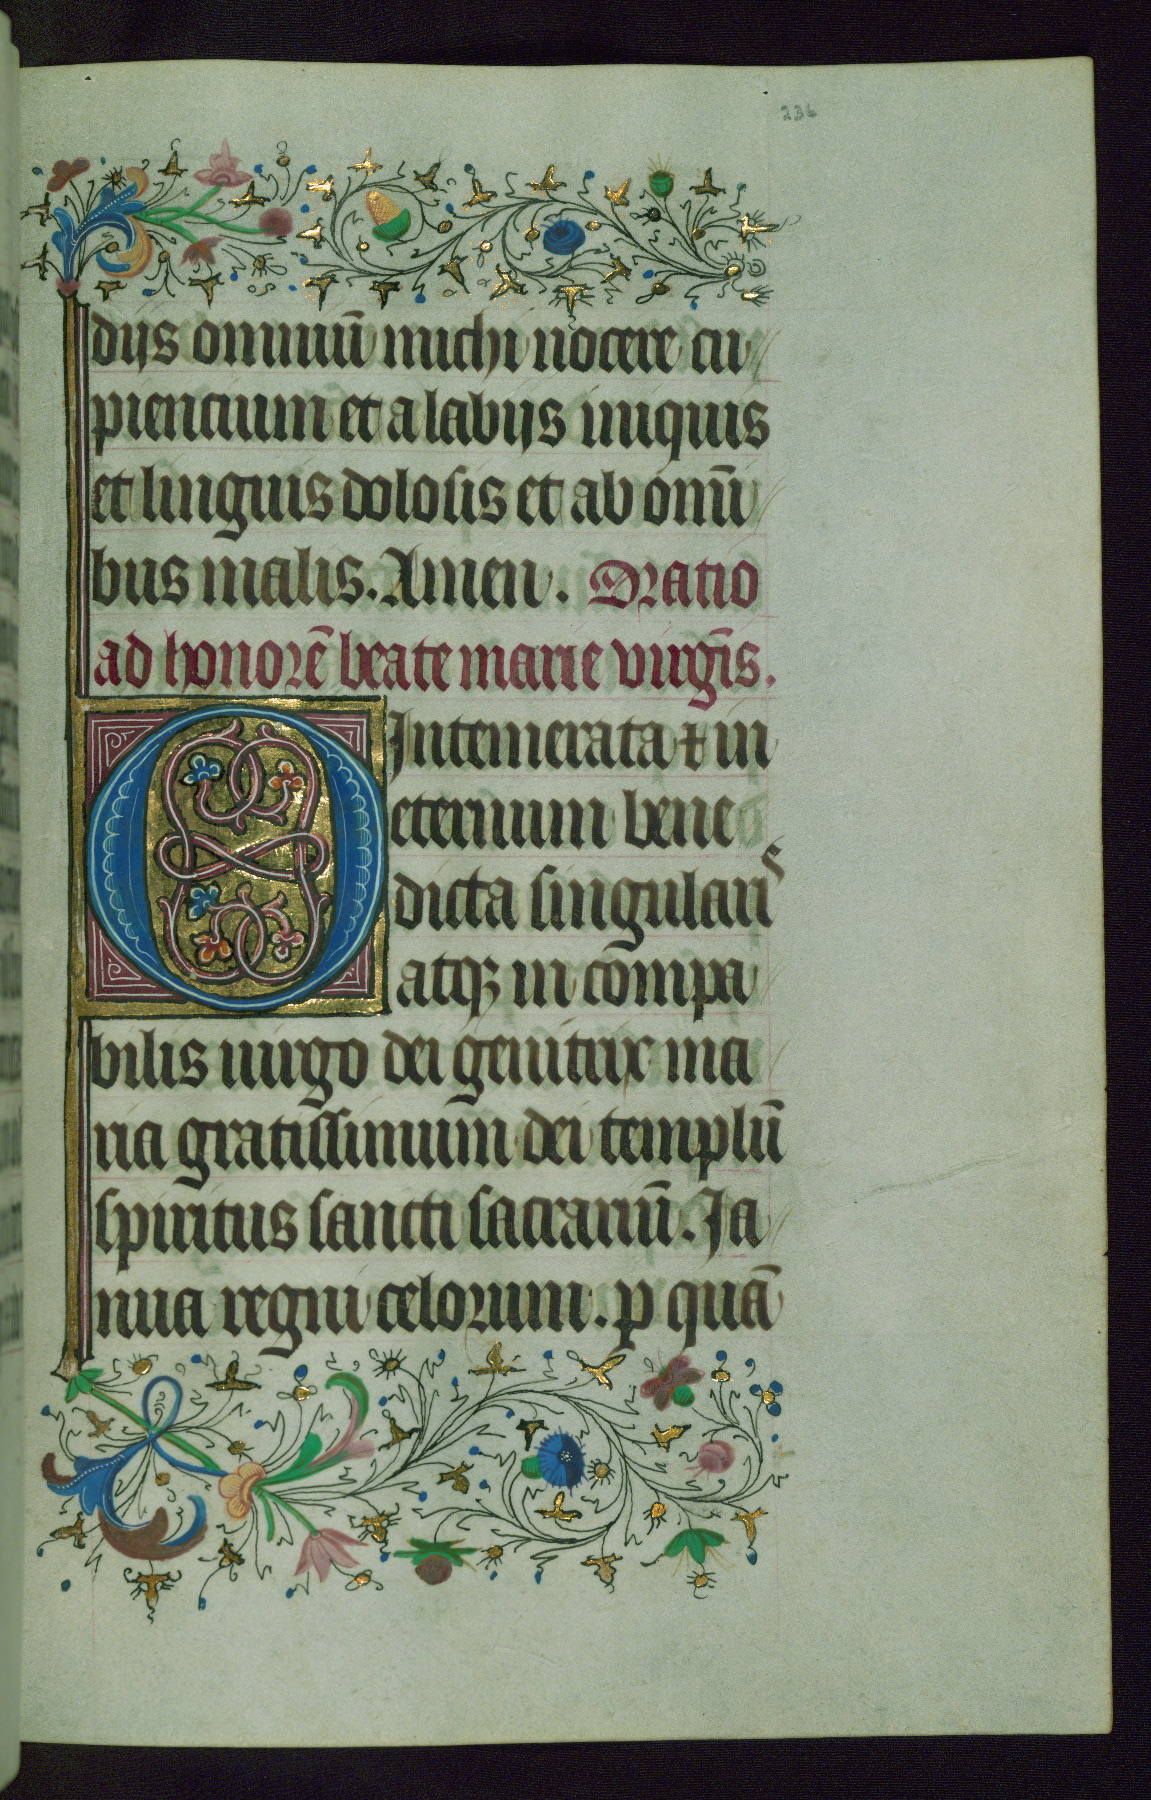 236
dijs omniū michi nocere cu
piencium et a labijs iniquis
et linguis dolosis et ab omī
bus malis. Amen. Oratio
ad honorē beate marie virgīs.
O Intemerata et in
eternum bene
dicta singularis
atqꝫ in compa
bilis uirgo dei genitrix ma
ria gratissimum dei templū
spiritus sancti sacrariū. Ja
nua regni celorum. p quā